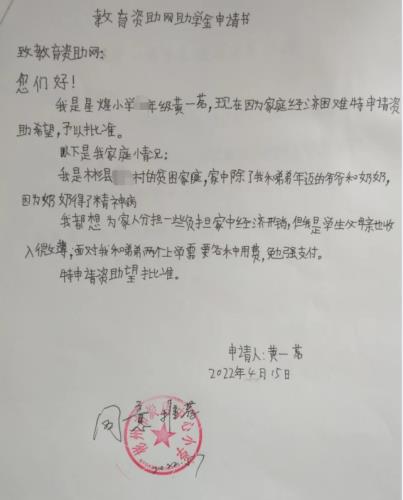 教育资助网助学金申请书
致教育资助网:
您们好!
我是星煌小学 年级黄一茗,现在因为家庭经济困难特申请资
助希望,予以批准。
以下是我家庭小情况:
我是彬县 村的贫困家庭,家中除了我和弟弟年迈的爷爷和奶奶,
因为奶奶得了精神病
我都想为家人分担一些负担家中经济开销,但我是学生父母亲也收
入很女薄,面对我和弟弟两个上学需要各种用费,勉强支付。
特申请资助望批准。
申请人:黄一茗
2022年4月15日
同意